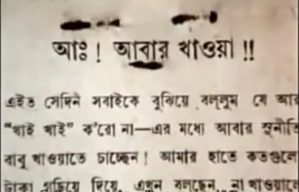 আঃ ! আবার খাওয়া !!
এইত সেদিন সবাইকে বুঝিয়ে বল্লুম যে আর
“খাই খাই” ক'রো না—এর মধ্যে আবার সুনীতি
বাবু খাওয়াতে চাচ্ছেন ! আমার হাতে কতগুলো
টাকা গুছিয়ে দিয়ে, এখন বলছেন, না খাওয়ালে